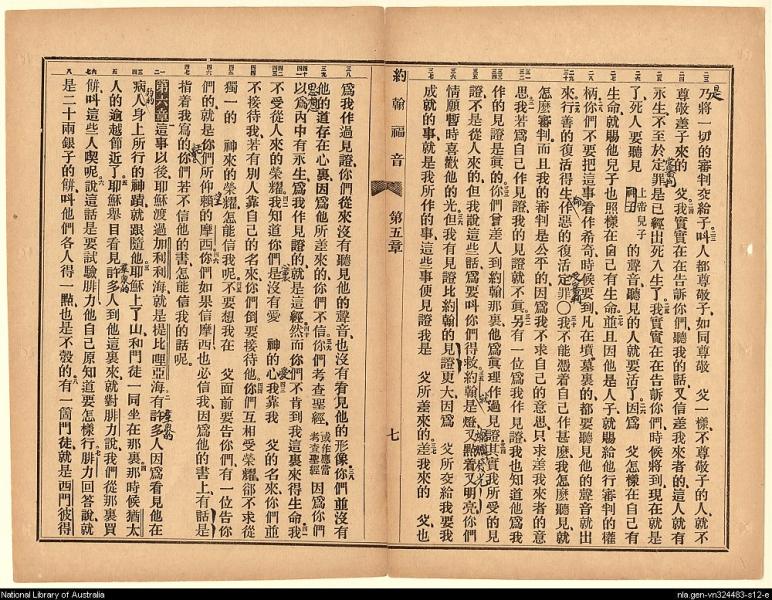 乃將一切的審判交給子叫人都尊敬子如同尊敬 父一樣不尊敬子的人就不
尊敬差子來的 父我實實在在告訴你們聽我的話又信差我來者的這人就有
永生不至於定罪是已經出死入生了我實實在在告訴你們時候將到現在就是
了死人要聽見 神 上帝兒子 的聲音聽見的人就要活了因爲 父怎樣在自己有
生命就賜他兒子也照樣在自己有生命並且因他是人子就賜給他行審判的權
柄你們不要把這事看作希奇時候要到凡在墳墓裏的都要聽見他的聲音就出
來行善的復活得生作惡的復活定罪〇我不能憑着自己作甚麼我怎麼聽見就
怎麼審判而且我的審判是公平的因爲我不求自己的意思只求差我來者的意
思我若爲自己作見證我的見證就不眞另有一位爲我作見證我也知道他爲我
作的見證是眞的你們曾差人到約翰那裏他爲眞理作過見證其實我所受的見
證不是從人來的但我說這些話爲要叫你們得救約翰是燈又點着又明亮你們
情願暫時喜歡他的光但我有見證比約翰的見證更大因爲 父所交給我要我
成就的事就是我所作的事這些事便見證我是 父所差來的差我來的 父也
約翰福音 第五章 七
爲我作過見證你們從來沒有聽見他的聲音也沒有看見他的形像你們並沒有
他的道存在心裏因爲他所差來的你們不信你們考查聖經 或作應當考查聖經 因爲你們
以爲內中有永生爲我作見證的就是這經然而你們不肯到我這裏來得生命我
不受從人來的榮耀我知道你們是沒有愛 神的心我靠我 父的名來你們並
不接待我若有別人靠自己的名來你們倒要接待他你們互相受榮耀卻不求從
獨一的 神來的榮耀怎能信我呢不要想我在 父面前要告你們有一位告你
們的就是你們所仰賴的摩西你們如果信摩西也必信我因爲他的書上有話是
指着我寫的你們若不信他的書怎能信我的話呢
第六章這事以後耶穌渡過加利利海就是提比哩亞海有許多人因爲看見他在
病人身上所行的神蹟就跟隨他耶穌上了山和門徒一同坐在那裏那時候猶太
人的逾越節近了耶穌舉目看見許多人到他這裏來就對腓力說我們從那裏買
餠叫這些人喫呢說這話是要試驗腓力他自己原知道要怎樣行腓力回答說就
是二十兩銀子的餠叫他們各人得一點也是不彀的有一箇門徒就是西門彼得
National Library of Australia
nla.gen-vn324483-s12-e